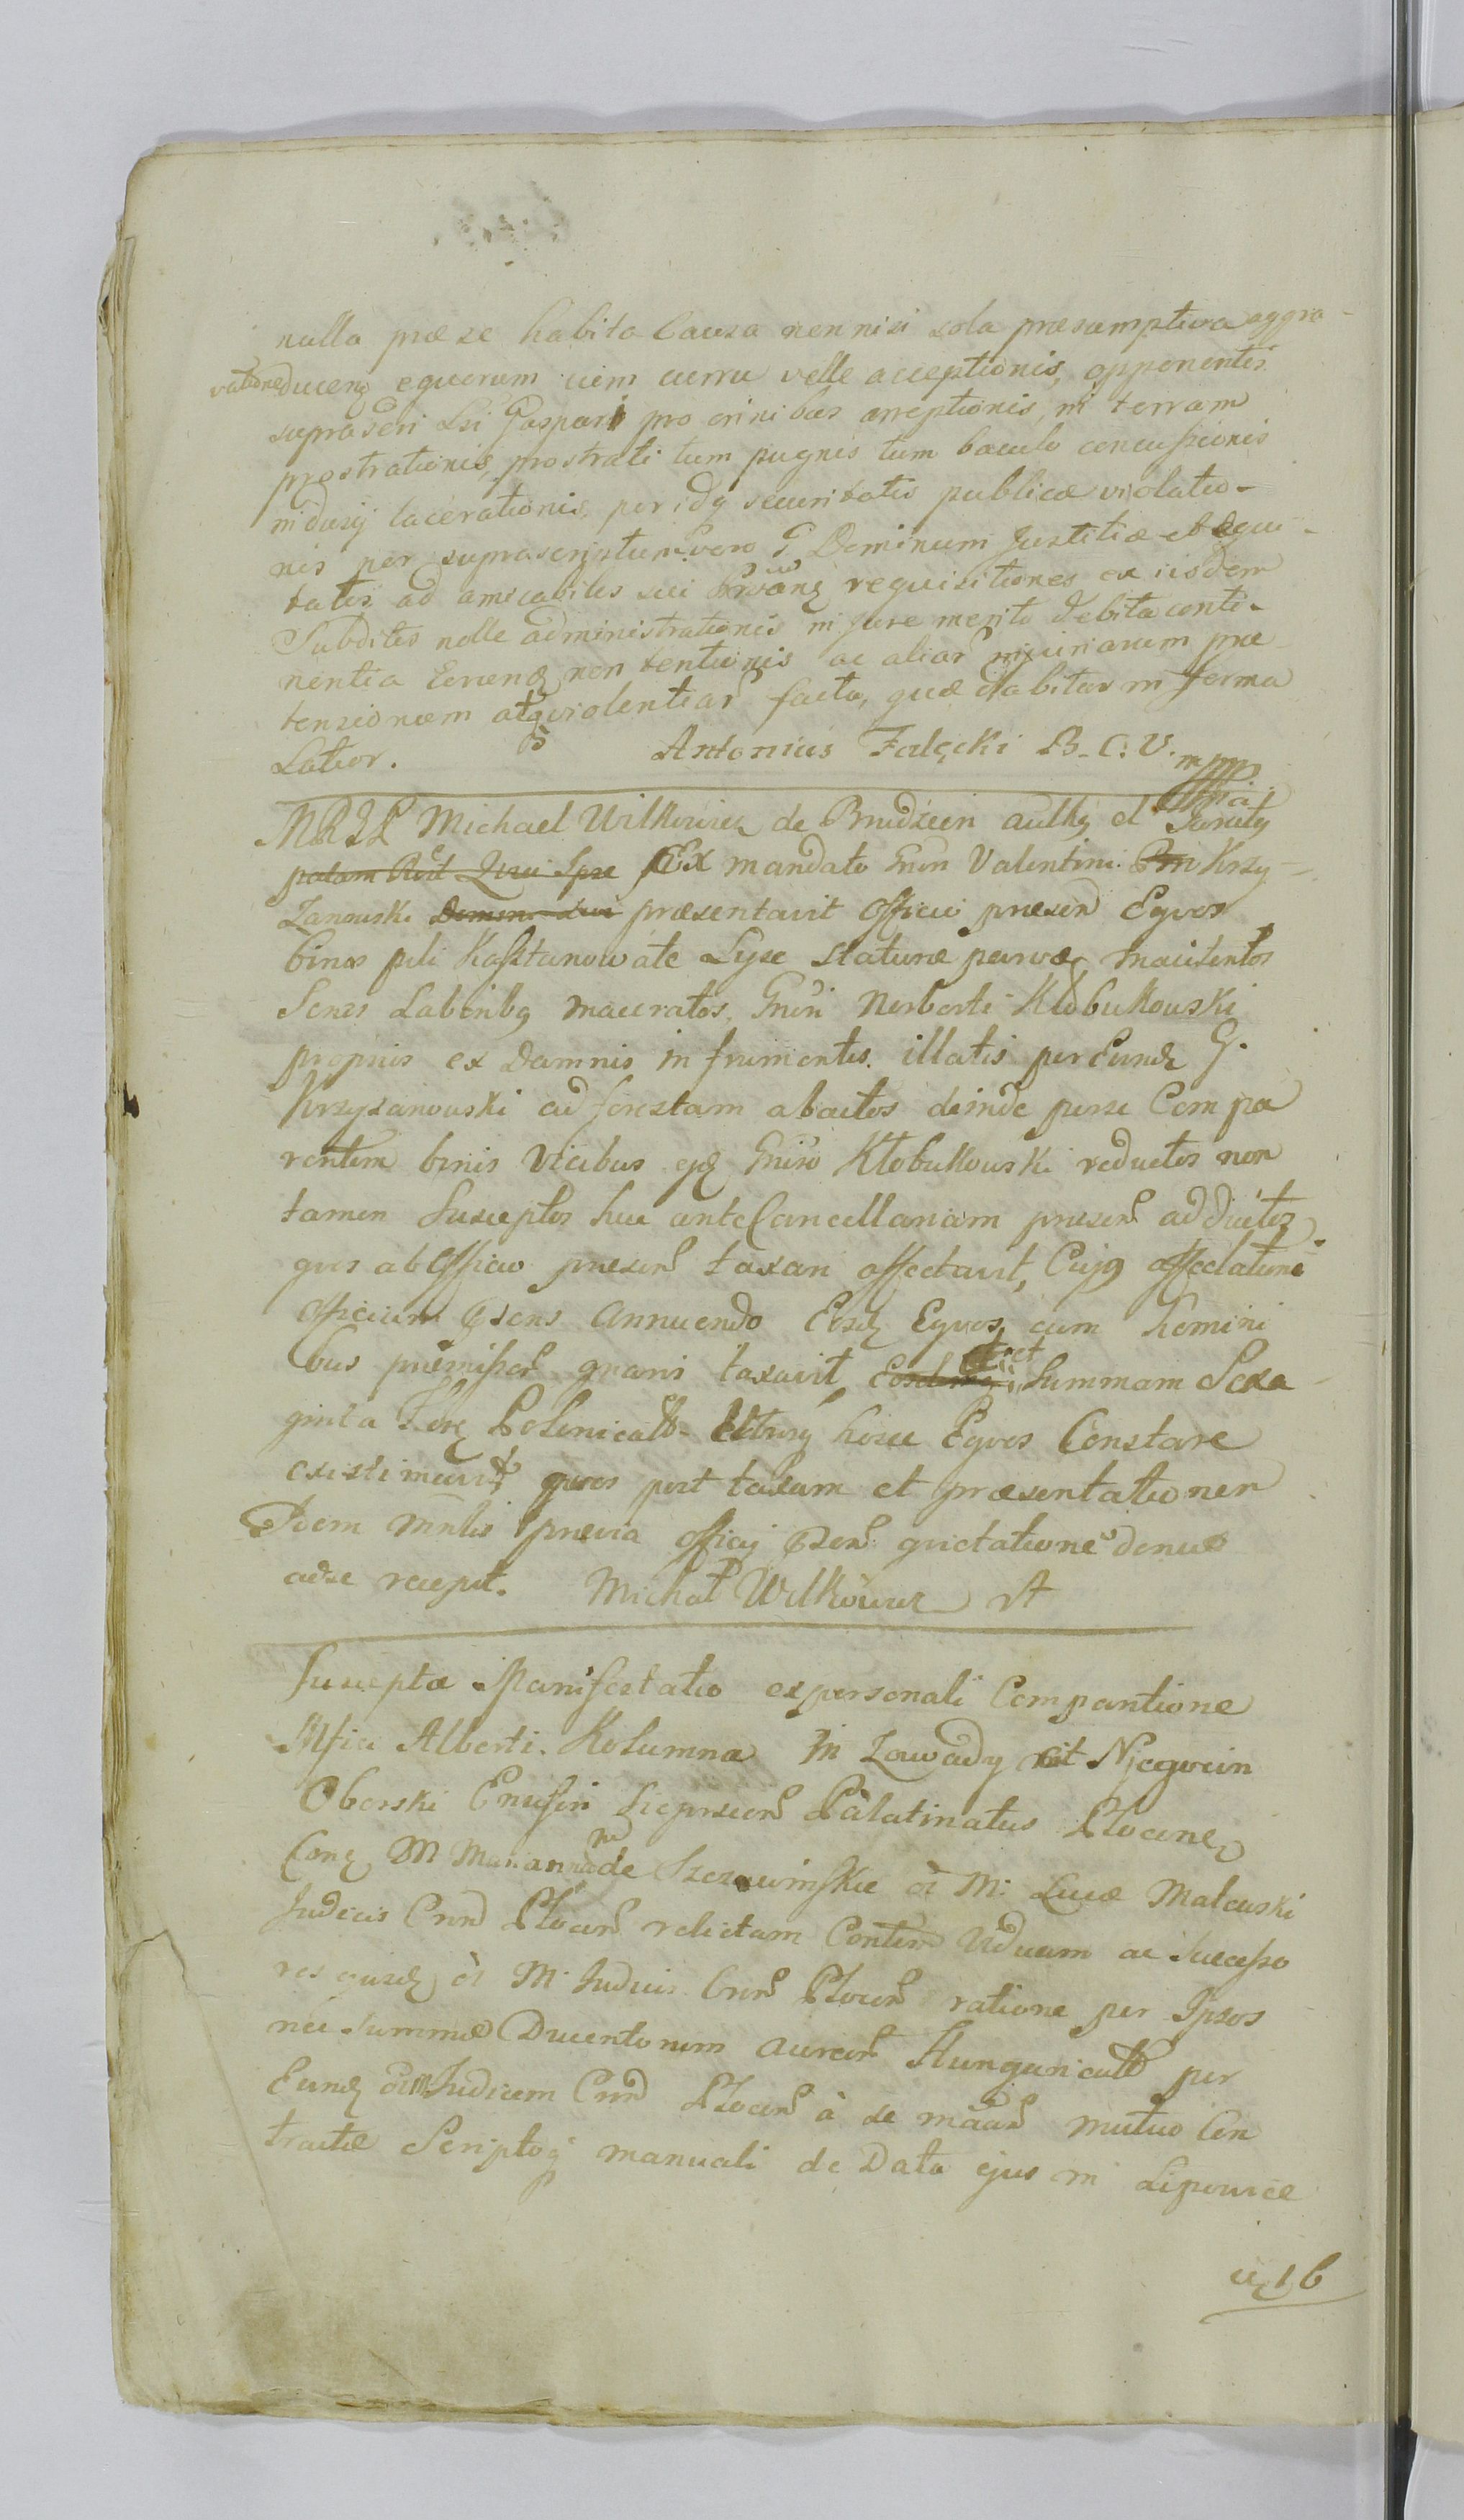 nulla præ se habita Causa non nisi sola præsumptiva aggra-
vatione ducenq equorum cum curru velle acceptionis, opponentis
suprascri Lsi Gaspari pro crinibus arreptionis, in terram
prostrationis, prostrati tum pugnis tum baculo concussionis
indusij lacerationis, per idq securitatis publicæ violatio-
nis per suprascriptum vero G Dominum Justitiæ et æqui-
tatis ad amicabiles sui requisitiones ex iisdem
Subditis nolle administrationis in jure merito debita conti-
nentia non tentionis ac aliar injuriarum præ
tensionem atq violentiar facta, quæ dabitur in forma
Latior. Antonius Falęcki B. C. V. mpp
Michael Wilkowicz de Brudzeń aulkq et Juratq
Ex mandato Gnsi Valentini Krzy-
żanowski præsentavit Officio præsen Equos
binos pili Kasztanowate Lyse staturæ parvæ macilentos
Senes Laboribq maceratos Gnsi Norberti Kłobukowski
proprios ex Damnis in frumentis illatis per Eund G.
Krzyżanowski ad forestam abactos deinde per se Compa
rentem binis Vicibus ejd Gniso Kłobukowski reductos non
tamen Susceptos huc ante Cancellariam præsen adductos
quos ab Officio præsen taxari affectavit, Cujq affectationi
Officium Psens annuendo Eosd Equos cum homini
bus præmissor gnaris taxavit et Summam Sexa
ginta Flor Polonicali Utrumq hosce Equos Constare
existimavit quos post taxam et præsentationem
Idem Mnlis prævia officij Psen quietatione denuo
ad se recepit. Michał Wilkowicz
Suscepta Manifestatio ex personali Comparitione
Mfici Alberti Kolumna in Zawady et Njegocin
Oborski Ensiferi Sieprcen Palatinatus Plocens
Conq M Mariannam de Szczawinskie oi M: Lucæ Malewski
Judicis Crns Plocen relictam Conten Viduam ac Successo
res ejusd oi M. Judicis Crns Plocen ratione per Ipsos
nec Summæ Ducentorum aureor Hungarical per
Eund oi M Judicem Crns Plocen à se mutuo Con
tractæ Scriptoq manuali de Data ejus in Lipowiec
16